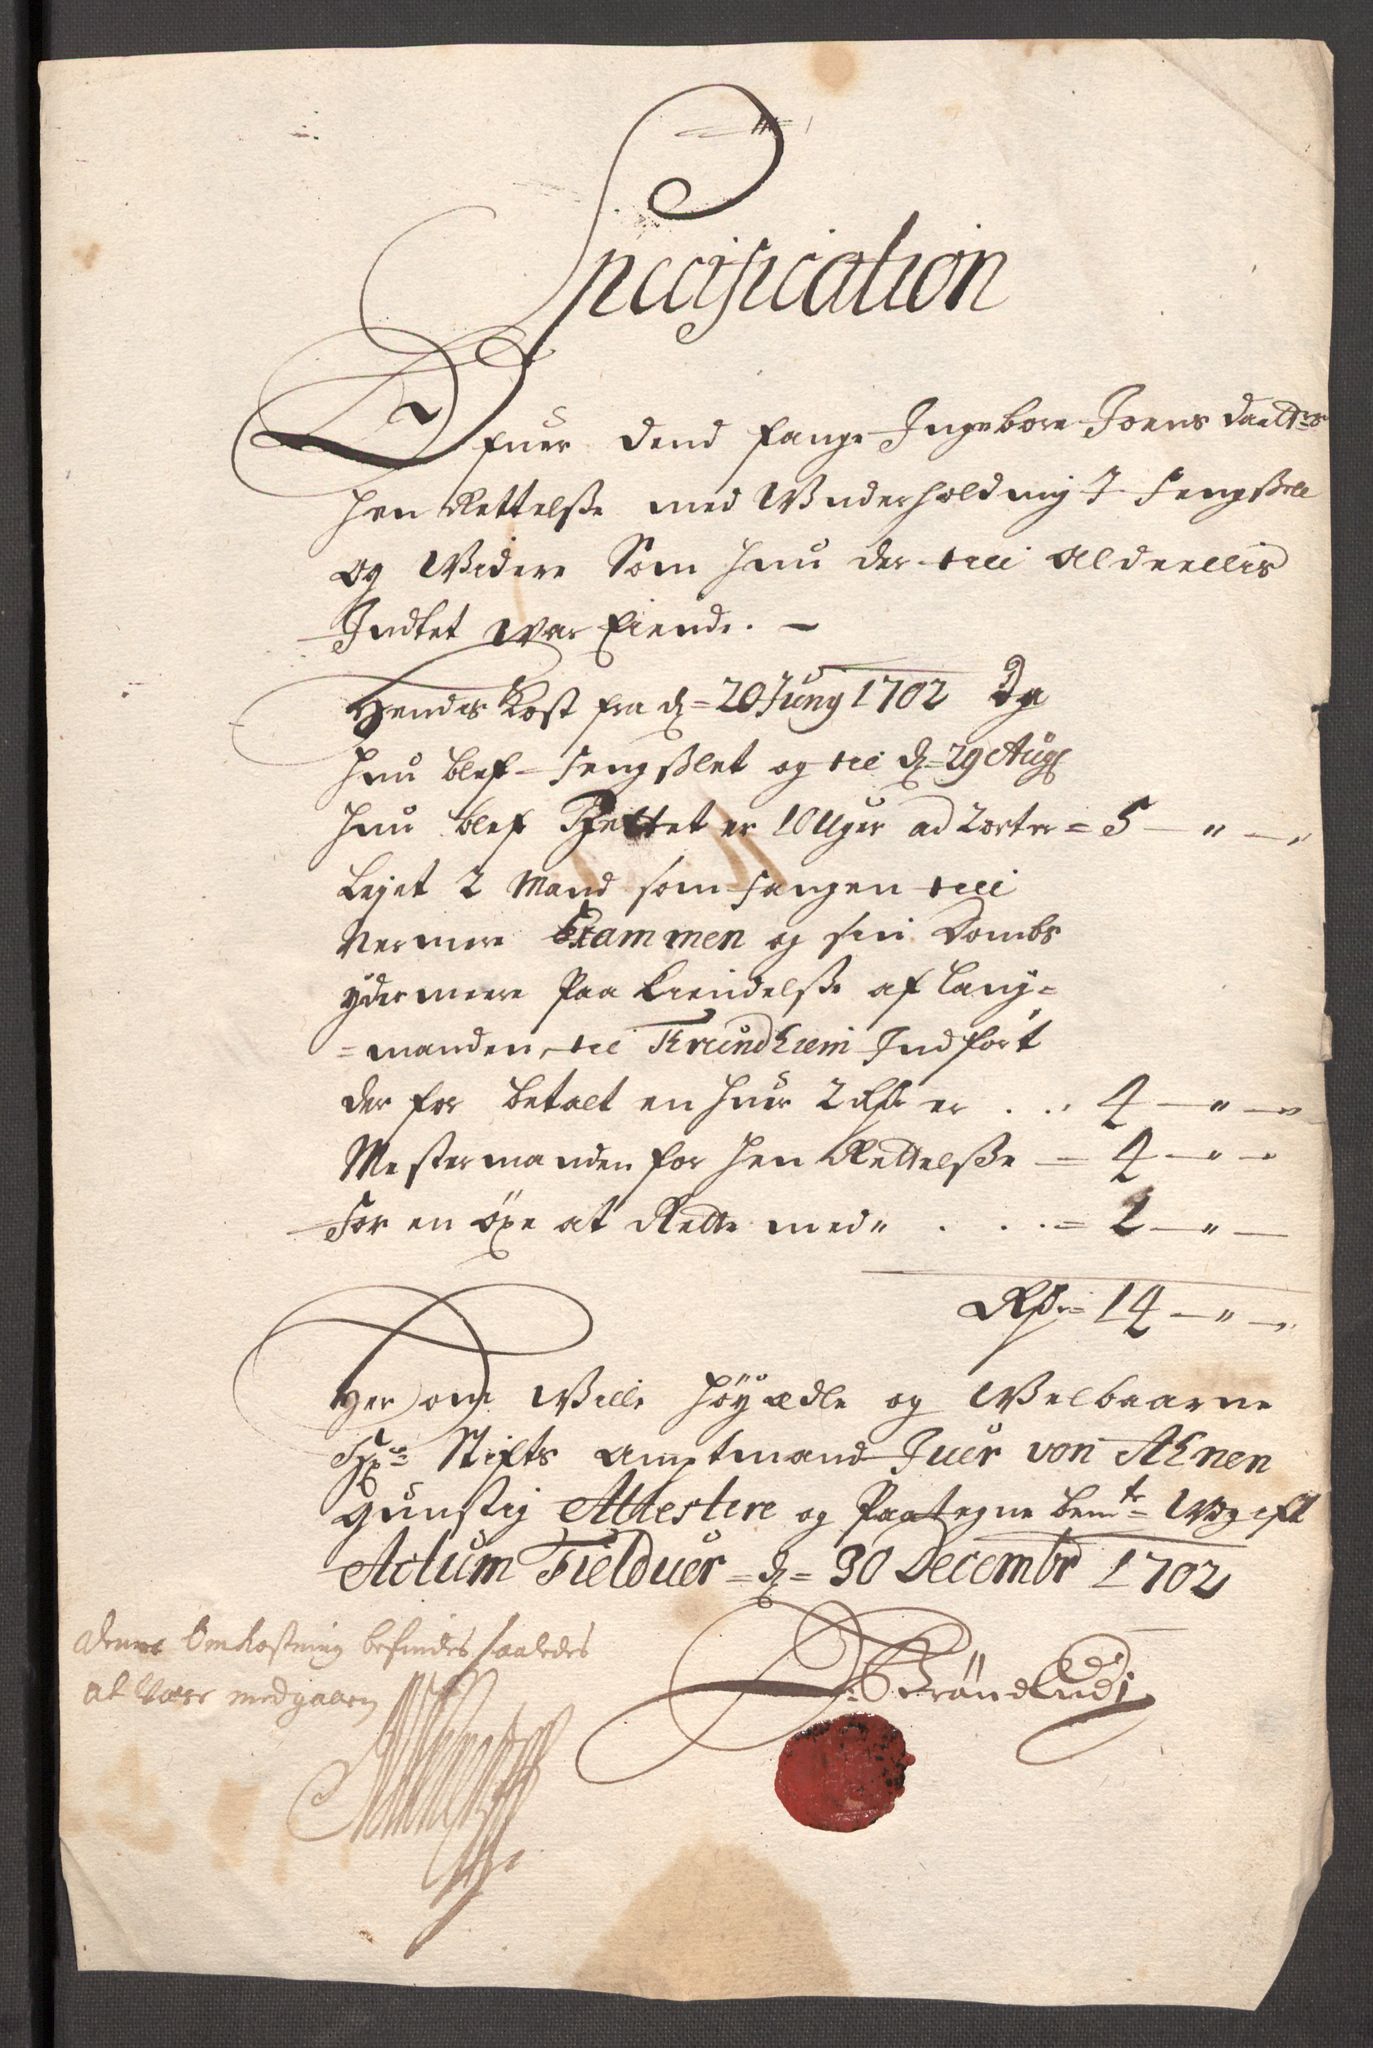 Specification
Ofuer dend fange Ingebore Joens daatters
hen Rettelsse med Vnderholdning I fengssell
og Videre Som hun der till Aldeellis
Indtet War Eiende.
Hendes Kost fra d= 20 Juny 1702 Da
hun blef fengsslet og till d= 29 Aug
hun blef Rettet er 10 Uger ad 2 orter = 5 — " — "
Lejet 2 Mand som fangen till
Nermere Exammen og sin Dombs
ydermeere Paa Kiendelsse af Laug=
=manden, till Trundhiem Indført
der for betalt en huer 2 Rdr er . . . 4 — " — "
Mestermanden for hen Rettelsse — = 4 — " — "
For en øxe at Rette med " . . . . = 1 — " —
Rdr = 14 — " — "
Her om Wille høyædle og Welbaarne
Hr= Stifts Amptmand Juer von Ahnen
gunstig Attestere og Paategne bemte= Wdgift
Actum Fielduer = d= 30 Decembr 1702
denne Omkostning befindes saaledes
at være medgaaen